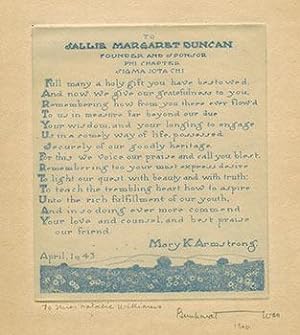 TO
SALLIE MARGARET DUNCAN
FOUNDER AND SPONSOR
PHI CHAPTER
SIGMA IOTA CHI
Full many a holy gift you have bestowed,
And now we give our gratefulness to you,
Remembering how from you there ever flow'd
To us in measure far beyond our due
Your wisdom, and your longing to engage
Us in a comely way of life, possessed
Securely of our goodly heritage,
For this we voice our praise and call you blest.
Remembering too your most express desire
To light our quest with beauty and with truth:
To teach the trembling heart how to aspire
Unto the rich fulfillment of our youth,
And in so doing ever more commend
Your love and counsel, and best praise
our friend.
Mary K Armstrong
April, 1943
To Miss Natalie Williams